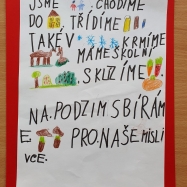 JSME CHODÍME
DO TŘÍDÍME
TAKÉ V KRMÍME
MÁME ŠKOLNÍ
SKLIZÍME
NA PODZIM SBÍRÁM
E PRO NAŠE MISLI
VCE.